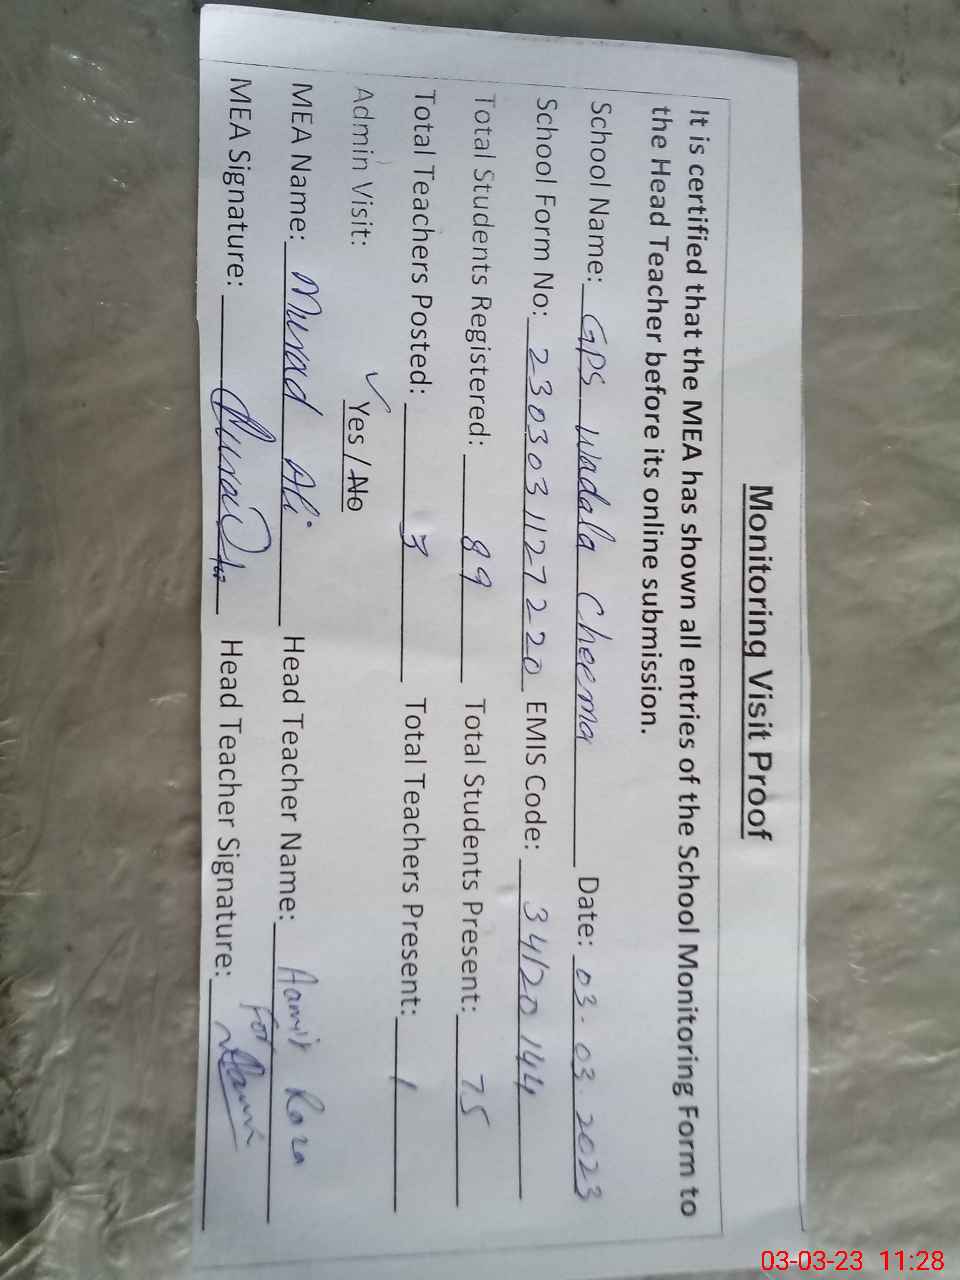 Monitoring Visit Proof
It is certified that the MEA has shown all entries of the School Monitoring Form to
the Head Teacher before its online submission.
School Name: GPS Wadala Cheema Date: 03.03.2023
School Form No: 2303031127220 EMIS Code: 34120144
Total Students Registered: 89 Total Students Present: 75
Total Teachers Posted: 3 Total Teachers Present: 1
Admin Visit: ✓ Yes / No
MEA Name: Murad Ali Head Teacher Name: Aamir Raza
MEA Signature: Head Teacher Signature: For
03-03-23 11:28